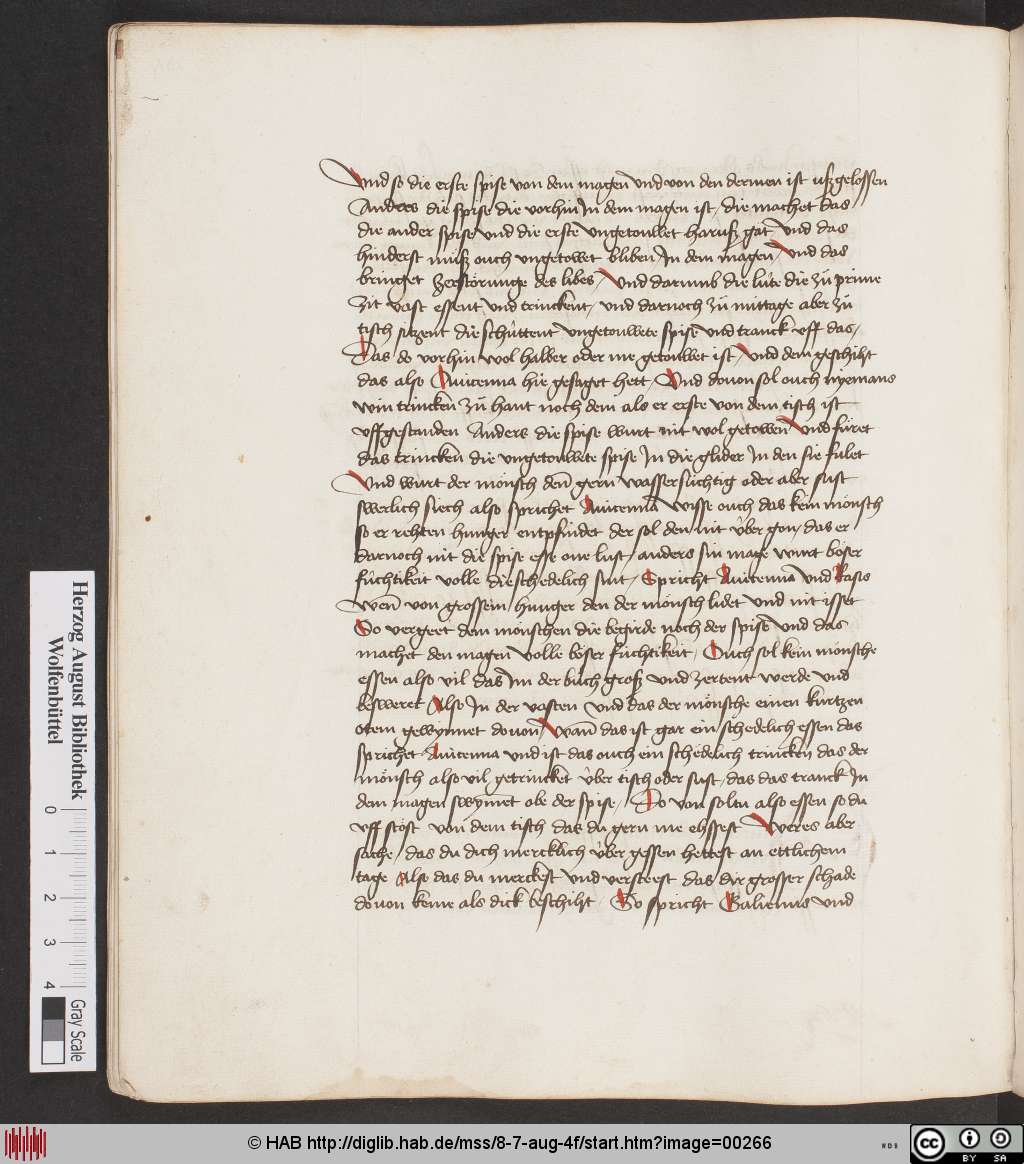 Und so die erste spise von dem magen und von den dermen ist ußgelossen
Anders die spise die vorhin In dem magen ist / die machet das
die ander spise und die erste ungetouwet haruß gat und das
hinderst muß ouch ungetowet bliben In dem magen / und das
bringet zerstörunge des libes / Und darumb die lüte die zü prime
zit vast essent und trinckent / und darnoch zü mittage aber zü
tisch sizent die schüttent ungetouwete spise und tranck uff das /
Das do vorhin wol halber oder me getouwet ist / und dem geschiht
das also Auicenna hie gesaget hett / Und douon sol ouch nyemans
win trincken zü hant noch dem als er erste von dem tisch ist
uffgestanden Anders die spise wurt nit wol getowen̄ und füret
das trincken die ungetouwete spise In die glider In den sie fulet
Und wurt der mönsch den̄ gern wassersüchtig oder aber sust
swerlich siech also sprichet Auicenna wisse ouch das kein mönsch
so er rehten hunger entpfindet der sol den nit über gon / das er
darnoch nit die spise esse one lust / anders sin mage wurt böser
füchtikeit volle die schedelich sint / Spricht Auicenna und Rasis
wen̄ von grossem hunger den der mönsch lidet und nit isset
So vergeet dem mönschen die begirde noch der spise und das
machet den magen volle böser füchtikeit / Ouch sol kein mönsche
essen also vil das Im der buch groß und zertent werde und
besweret Also In der vasten und das der mönsche einen kurtzen
otem gewynnet douon / wan̄ das ist gar ein schedelich essen das
sprichet Auicenna und ist das ouch ein schedelich trincken das der
mönsch also vil getrincket über tisch oder sust / das das tranck In
dem magen swym̄et obe der spise / Do von soltu also essen so du
uff stöst von dem tisch das du gern me eßsest Weres aber
sache / das du dich mercklich über gessen hettest an ettlichem
tage Also das du merckest und versteest das dir grosser schade
douon keme als dick beschiht So spricht Galienus und
Herzog August Bibliothek
Wolfenbüttel
0 1 2 3 4
Gray Scale
© HAB http://diglib.hab.de/mss/8-7-aug-4f/start.htm?image=00266
WDB
cc BY SA